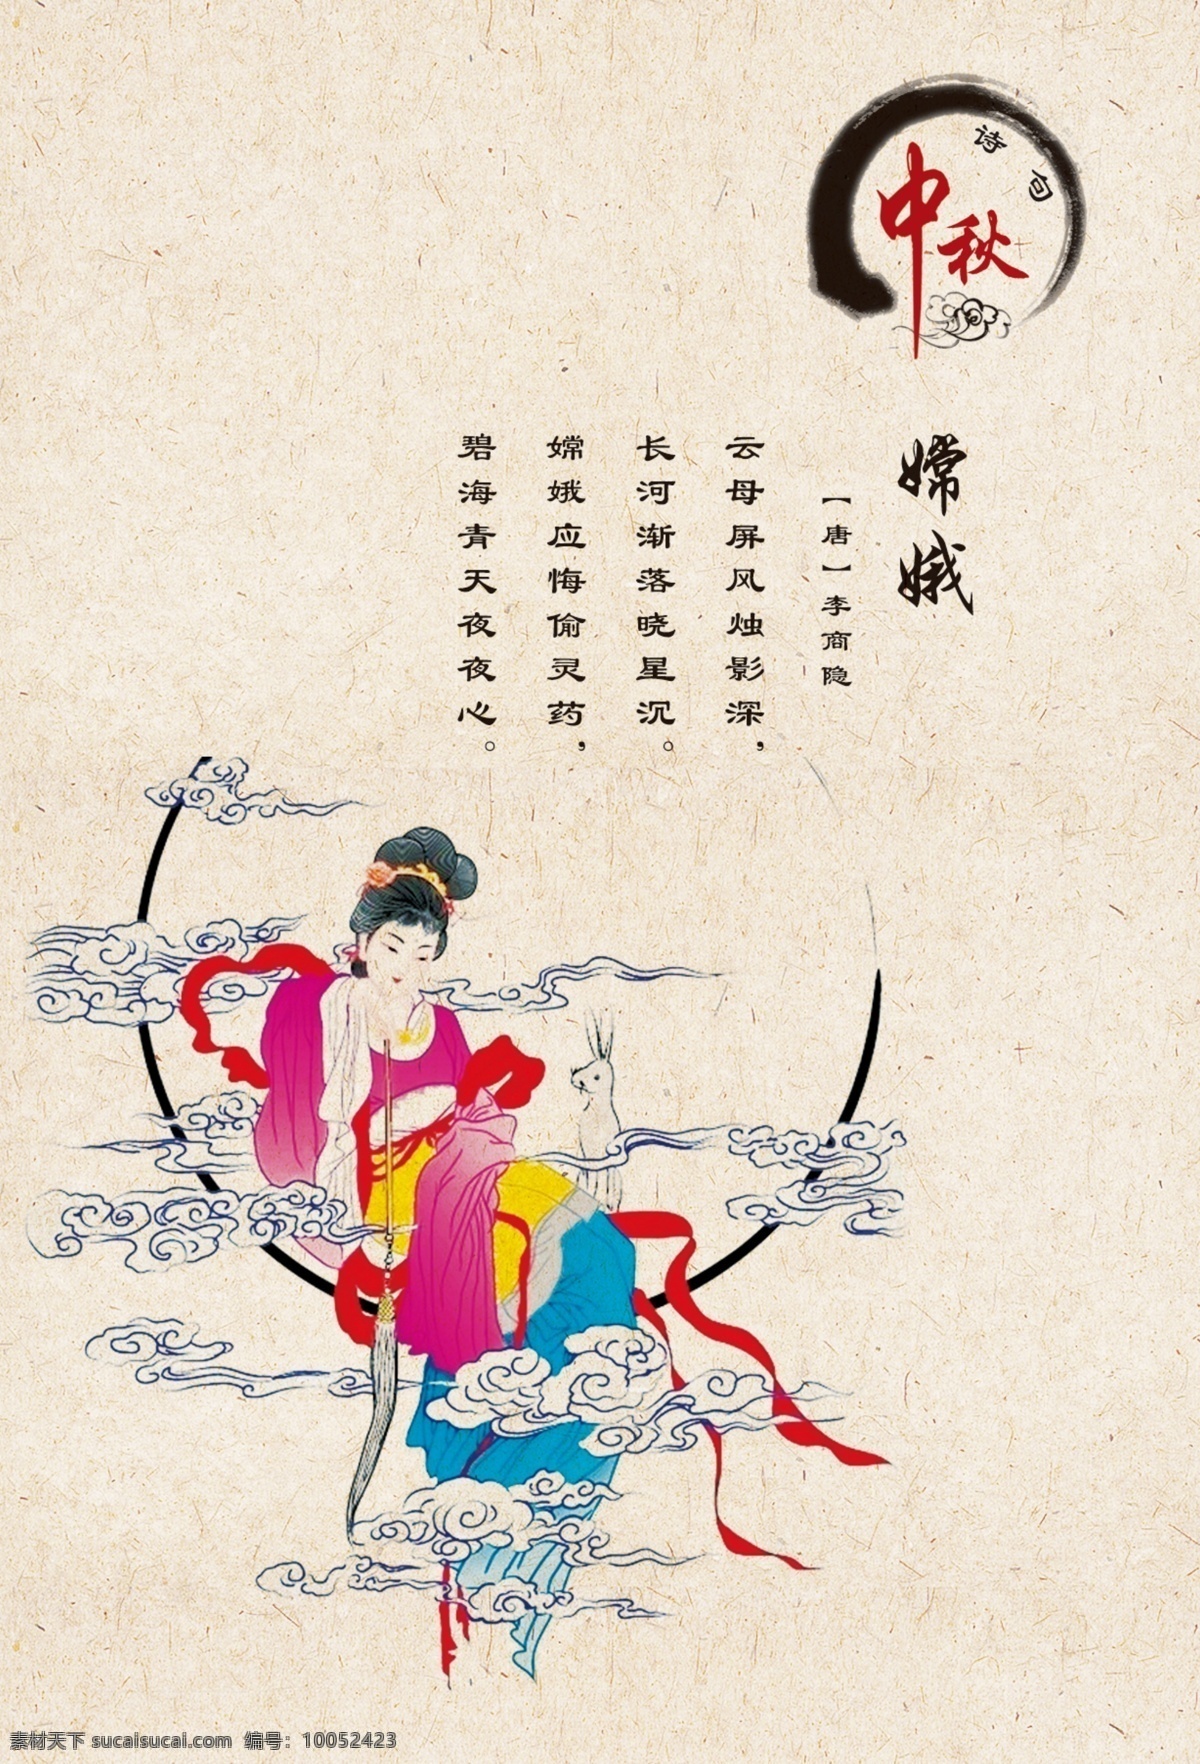 诗句
中秋
嫦娥
【唐】李商隐
云母屏风烛影深，
长河渐落晓星沉。
嫦娥应悔偷灵药，
碧海青天夜夜心。
素材天下 sucaisucai.com 编号：10052423